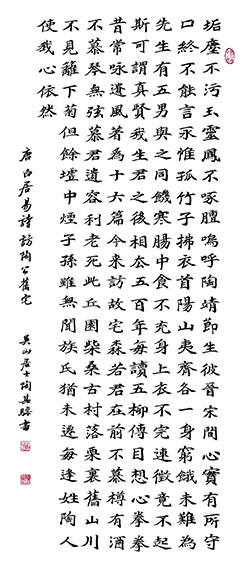 垢塵不污玉靈鳳不啄膻嗚呼陶靖節生彼晉宋間心實有所守
口終不能言永惟孤竹子拂衣首陽山夷齊各一身窮餓未難為
先生有五男與之同饑寒腸中食不充身上衣不完連徵竟不起
斯可謂真賢我生君之後相去五百年每讀五柳傳目想心拳拳
昔常詠遺風著為十六篇今來訪故宅森若君在前不慕樽有酒
不慕琴無弦慕君遺容利老死此丘園柴桑古村落栗裏舊山川
不見籬下菊但餘墟中煙子孫雖無聞族氏猶未遷每逢姓陶人
使我心依然
唐白居易詩訪陶公舊宅
吳山居士陶書